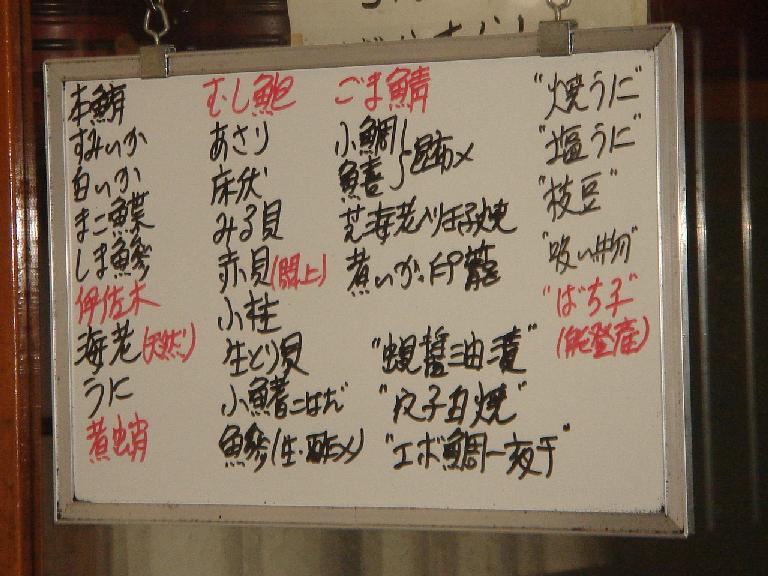 本鮪
すみいか
白いか
まこ鰈
しま鯵
伊佐木
海老(天然)
うに
煮蛸
むし鮑
あさり
床伏
みる貝
赤貝(閖上)
小柱
生とり貝
小鰭こはだ
鯵(生・酢〆)
ごま鯖
小鯛
鱚 昆布〆
芝海老入り玉子焼
煮いか・印籠
"蝦蛄醤油漬"
"穴子白焼"
"エボ鯛一夜干"
"焼うに"
"塩うに"
"枝豆"
"吸い物"
"ばち子"
(能登産)